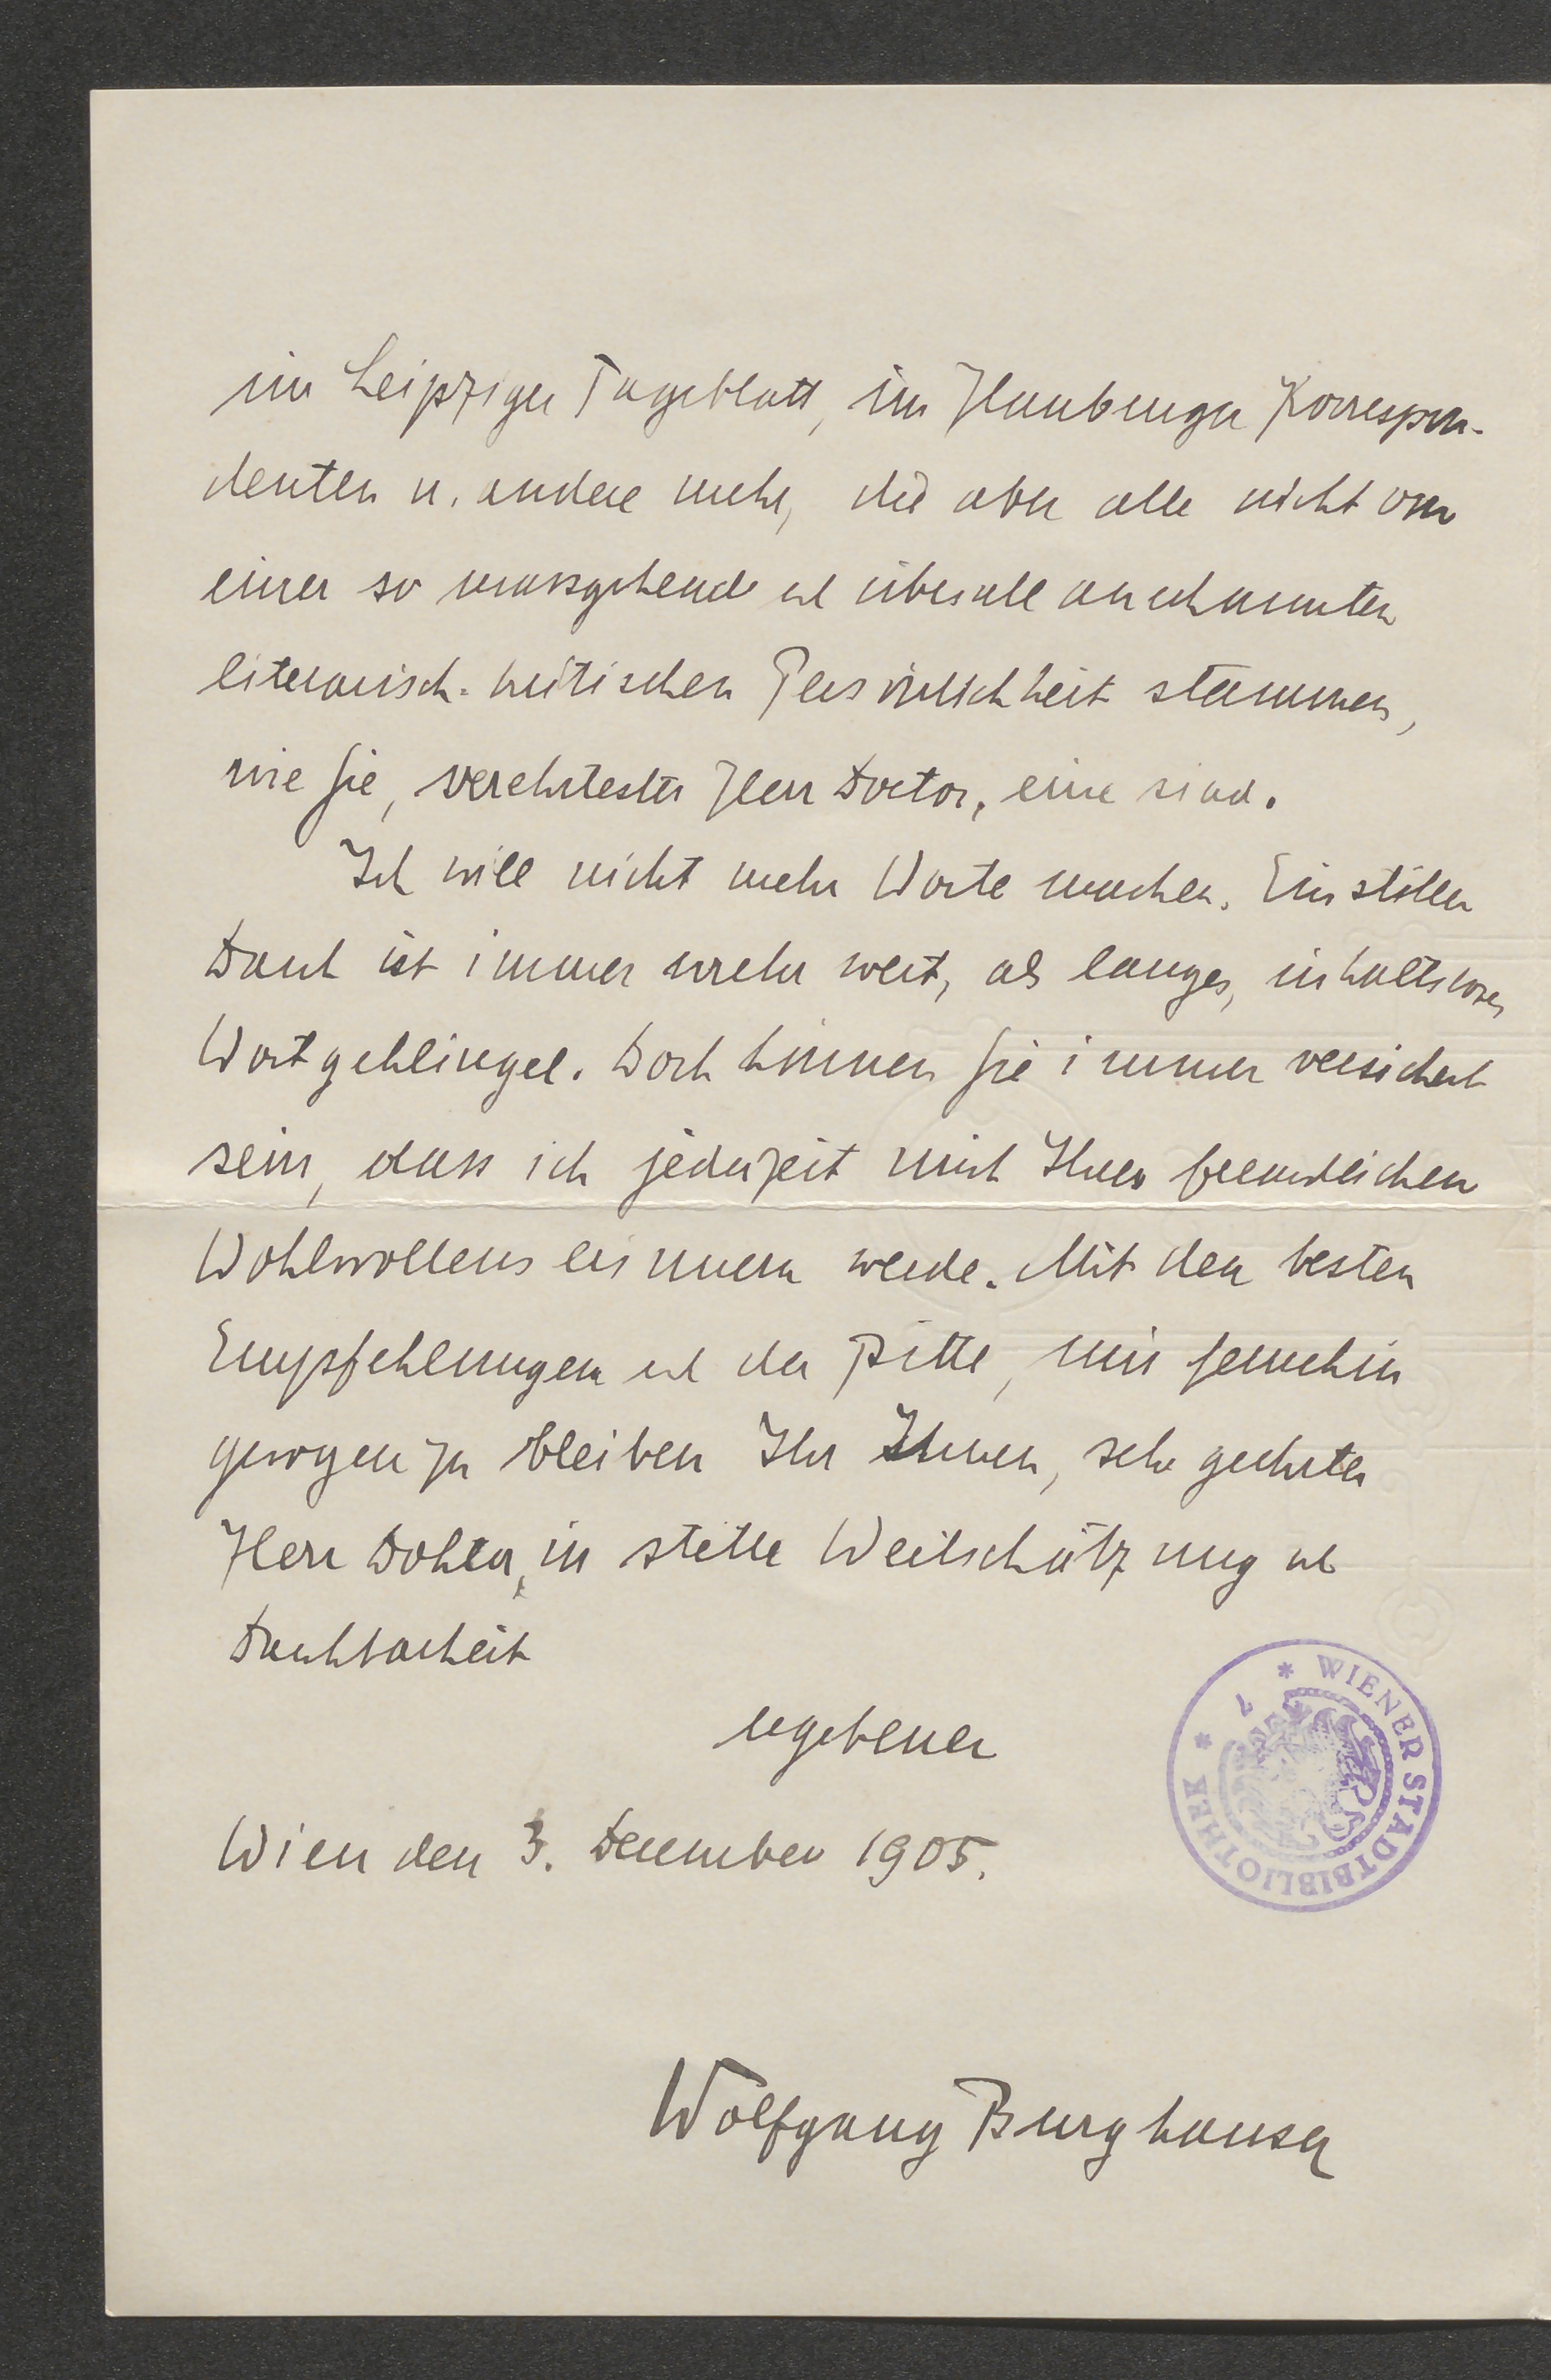 im Leipziger Tageblatt, im Hamburger Korrespon-
denten u. andere mehr, die aber alle nicht von
einer so massgebend ud überall anerkannten
literarisch-kritischen Persönlichkeit stammen,
wie Sie, verehrtester Herr Doctor, eine sind.
Ich will nicht mehr Worte machen. Ein stiller
Dank ist immer mehr wert, als langes, inhaltsloses
Wortgeklingel. Doch können Sie immer versichert
sein, dass ich jederzeit mich Ihres freundlichen
Wohlwollens erinnern werde. Mit den besten
Empfehlungen ud der Bitte, mir fernerhin
gewogen zu bleiben Ihr Ihnen, sehr geehrter
Herr Dokter, in steter Wertschätzung ud
Dankbarkeit
ergebener
Wien den 3. December 1905.
* WIENER STADTBIBLIOTHEK *
Wolfgang Burghauser